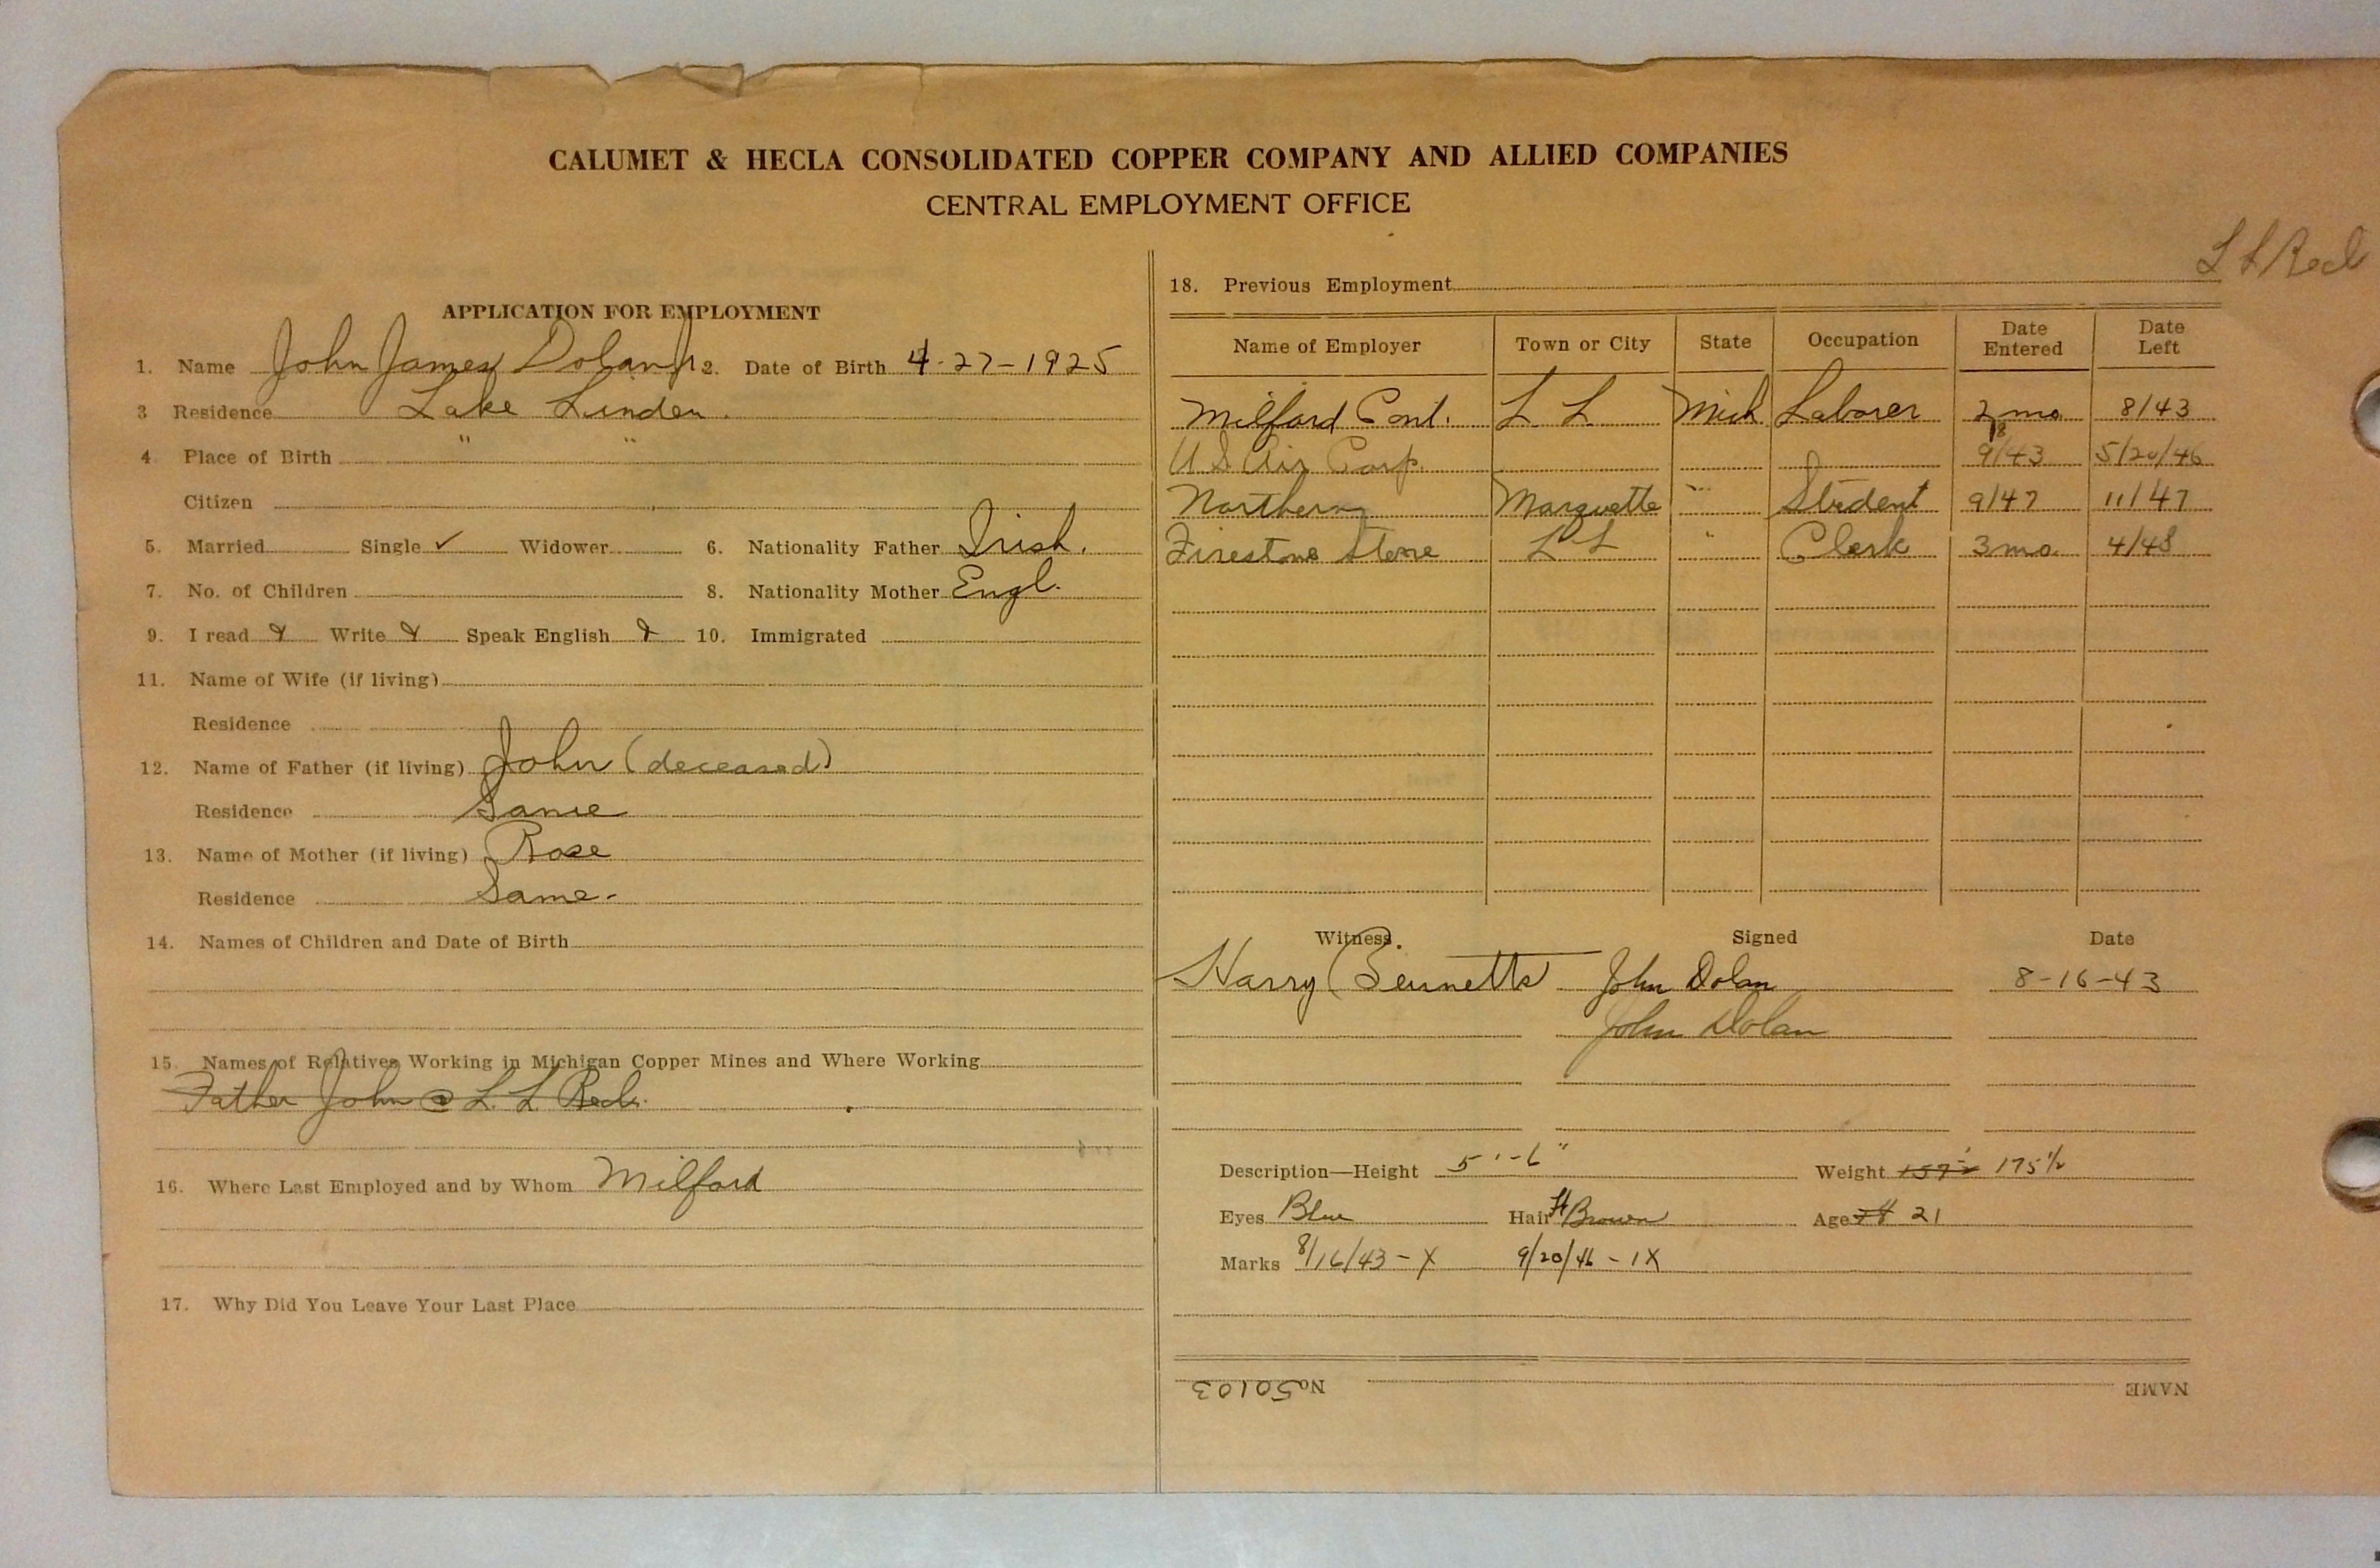 CALUMET & HECLA CONSOLIDATED COPPER COMPANY AND ALLIED COMPANIES
CENTRAL EMPLOYMENT OFFICE
APPLICATION FOR EMPLOYMENT
1. Name John James Dolan Jr 2. Date of Birth 4-27-1925
3 Residence Lake Linden.
4 Place of Birth " "
Citizen
5. Married Single ✓ Widower 6. Nationality Father Irish.
7. No. of Children 8. Nationality Mother Engl.
9. I read Write Speak English 10. Immigrated
11. Name of Wife (if living)
Residence
12. Name of Father (if living) John (deceased)
Residence Same
13. Name of Mother (if living) Rose
Residence Same-
14. Names of Children and Date of Birth
15. Names of Relatives Working in Michigan Copper Mines and Where Working
Father John @ L. L. Recl.
16. Where Last Employed and by Whom Milford
17. Why Did You Leave Your Last Place
L L Recl
18. Previous Employment
Name of Employer Town or City State Occupation Date Entered Date Left
Milford Cont. L L Mich Laborer 2 mo 8/43
U S Air Corp. 9/43 5/20/46
Northern Marquette " Student 9/47 11/47
Firestone Store L L " Clerk 3 mo. 4/48
Witness Signed Date
Harry Bennetts John Dolan 8-16-43
John Dolan
Description—Height 5'-6" Weight 175½
Eyes Blue Hair Lt Brown Age 21
Marks 8/16/43 - X 9/20/46 - 1X
No 50103 NAME